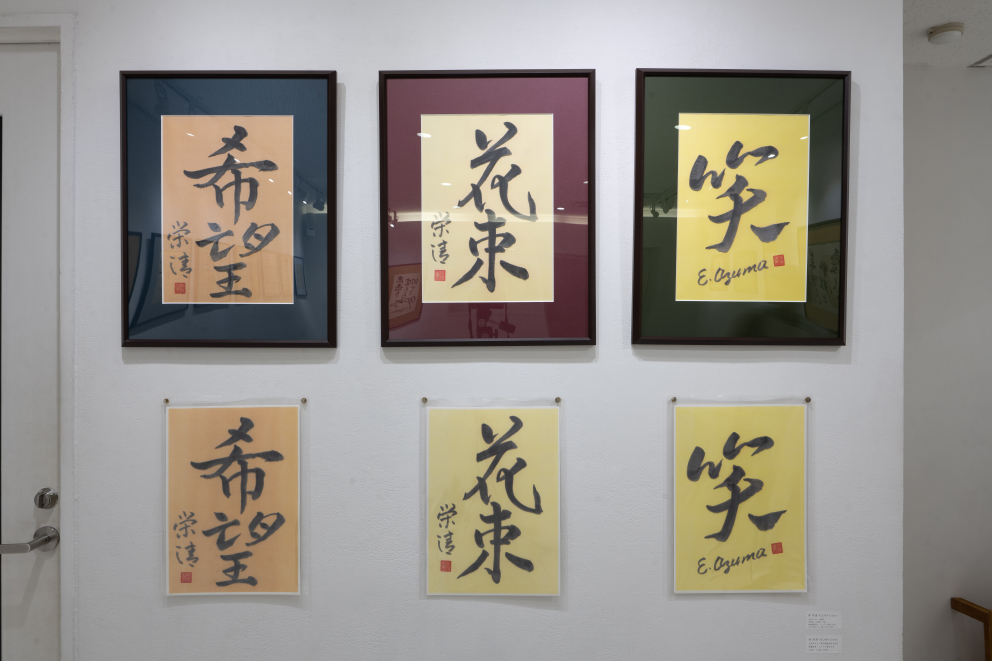 希望
栄清
花束
栄清
笑
E. Azuma
希望
栄清
花束
栄清
笑
E. Azuma